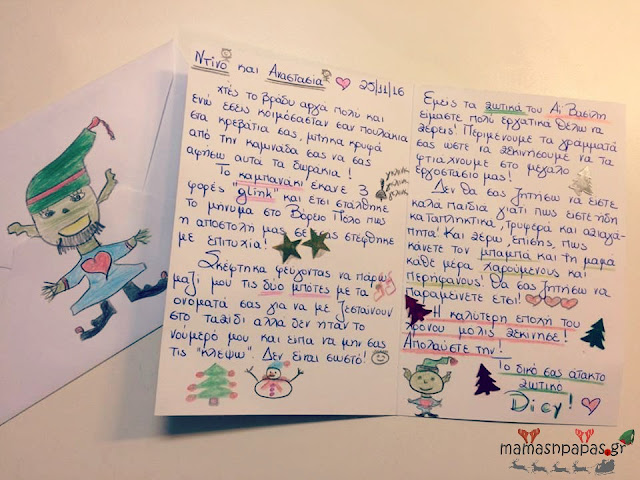 Ντίνο και Αναστασία 25/11/16
χτες το βράδυ αργά πολύ και
ενώ εσείς κοιμόσασταν σαν πουλάκια
στα κρεβάτια σας, μπήκα κρυφά
από την καμινάδα σας να σας
αφήσω αυτά τα δωράκια!
Το καμπανάκι έκανε 3
φορές "glink" και έτσι στάλθηκε
το μήνυμα στο Βόρειο Πόλο πως
η αποστολή μας στέφθηκε
με επιτυχία!
Σκέφτηκα φεύγοντας να πάρω
μαζί μου τις δύο μπότες με τα
ονόματά σας για να με ζεσταίνουν
στο ταξίδι αλλά δεν ήταν το
νούμερό μου και είπα να μην σας
τις "κλέψω". Δεν είναι σωστό!
Εμείς τα ξωτικά του Αϊ Βασίλη
είμαστε πολύ εργατικά θέλω να
ξέρεις! Περιμένουμε τα γράμματά
σας ώστε να ξεκινήσουμε να τα
φτιάχνουμε στο μεγάλο
εργοστάσιό μας!
Δεν θα σας ζητήσω να είστε
καλά παιδιά γιατί πως είστε ήδη
καταπληκτικά, τρυφερά και αξιαγά-
πητα! Και ξέρω, επίσης, πως
κάνετε τον μπαμπά και τη μαμά
κάθε μέρα χαρούμενους και
περήφανους! Θα σας ζητήσω να
παραμείνετε έτσι!
Η καλύτερη εποχή του
χρόνου μόλις ξεκίνησε!
Απολαύστε την!
Το δικό σας άτακτο
ξωτικό
Dicy!
mamasnpapas.gr